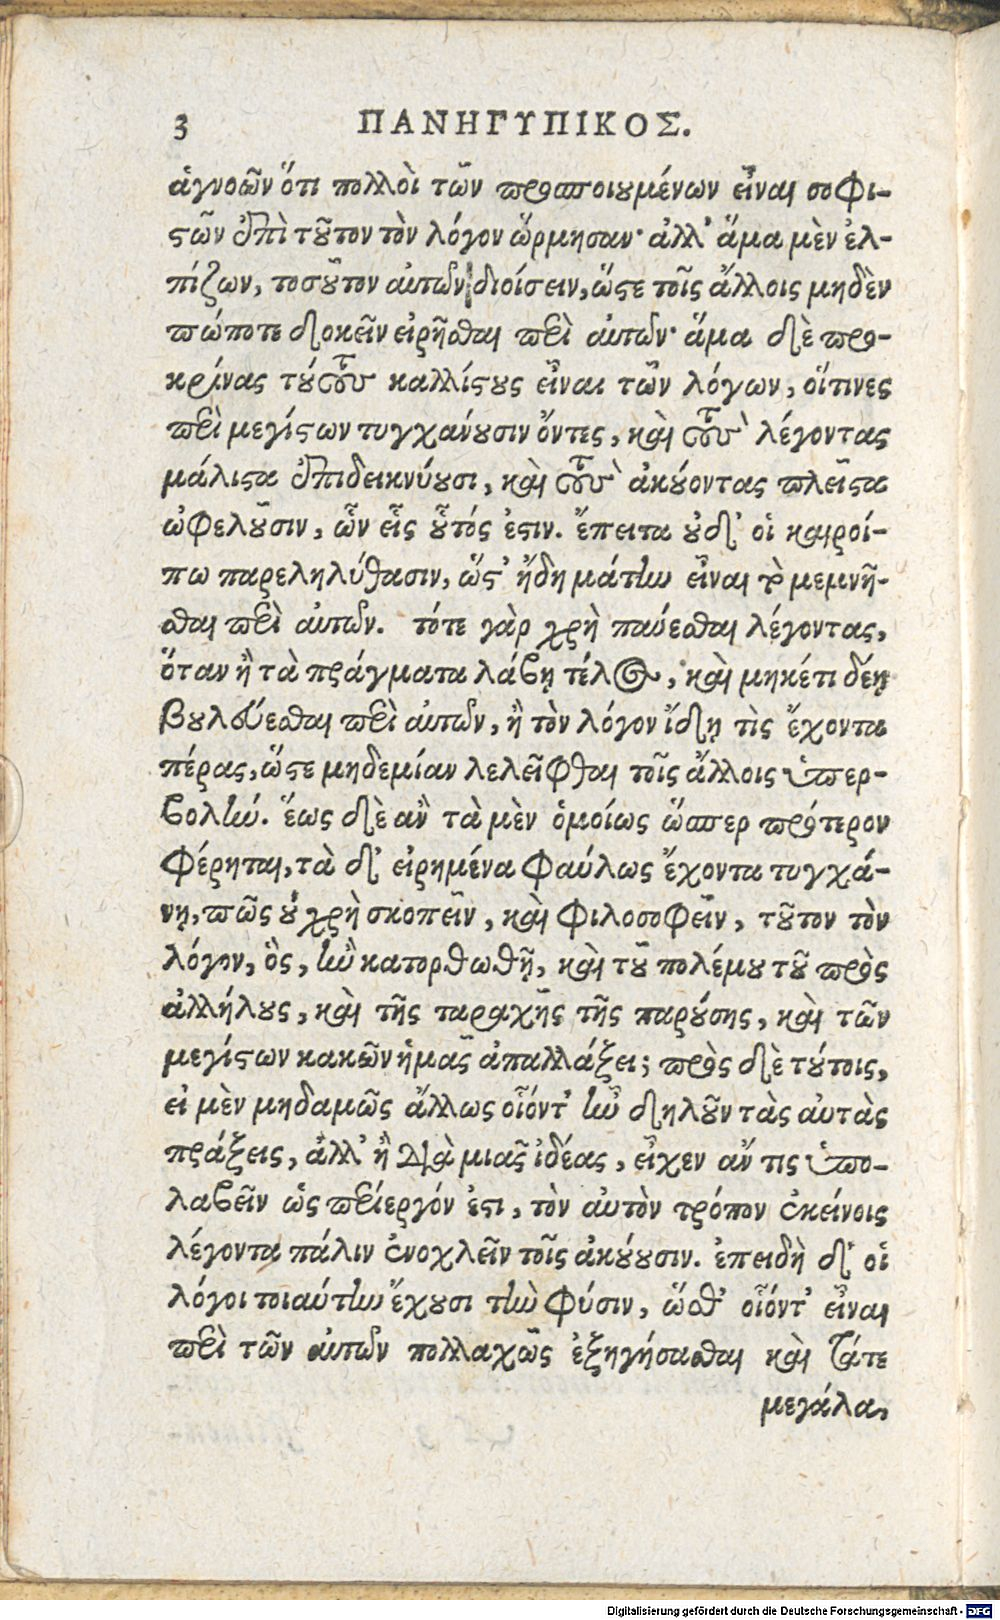 3 ΠΑΝΗΓΥΠΙΚΟΣ.
ἀγνοῶν ὅτι πολλοὶ τῶν προσποιουμένων εἶναι σοφι-
ϛῶν ἐπὶ τοῦτον τὸν λόγον ὥρμησαν· ἀλλ' ἅμα μὲν ἐλ-
πίζων, τοσοῦτον αὐτῶν διοίσειν, ὥϛε τοῖς ἄλλοις μηδὲν
πώποτε δοκεῖν εἰρῆσθαι περὶ αὐτῶν· ἅμα δὲ προ-
κρίνας τούτους καλλίϛους εἶναι τῶν λόγων, οἵτινες
περὶ μεγίϛων τυγχάνουσιν ὄντες, καὶ τοὺς λέγοντας
μάλιϛα ἐπιδεικνύουσι, καὶ τοὺς ἀκούοντας πλεῖϛα
ὠφελοῦσιν, ὧν εἷς οὗτός ἐϛιν. ἔπειτα οὐδ' οἱ καιροί-
πω παρεληλύθασιν, ὥϛ' ἤδη μάτην εἶναι τὸ μεμνῆ-
σθαι περὶ αὐτῶν. τότε γὰρ χρὴ παύεσθαι λέγοντας,
ὅταν ἢ τὰ πράγματα λάβῃ τέλος, καὶ μηκέτι δέῃ
βουλεύεσθαι περὶ αὐτῶν, ἢ τὸν λόγον ἴδῃ τὶς ἔχοντα
πέρας, ὥϛε μηδεμίαν λελεῖφθαι τοῖς ἄλλοις ὑπερ-
βολήν. ἕως δὲ ἂν τὰ μὲν ὁμοίως ὥσπερ πρότερον
φέρηται, τὰ δ' εἰρημένα φαύλως ἔχοντα τυγχά-
νῃ, πῶς οὐ χρὴ σκοπεῖν, καὶ φιλοσοφεῖν, τοῦτον τὸν
λόγον, ὃς, ἢν κατορθωθῇ, καὶ τοῦ πολέμου τοῦ πρὸς
ἀλλήλους, καὶ τῆς ταραχῆς τῆς παρούσης, καὶ τῶν
μεγίϛων κακῶν ἡμᾶς ἀπαλλάξει; πρὸς δὲ τούτοις,
εἰ μὲν μηδαμῶς ἄλλως οἷόντ' ἦν δηλοῦν τὰς αὐτὰς
πράξεις, ἀλλ' ἢ διὰ μιᾶς ἰδέας, εἶχεν ἄν τις ὑπο-
λαβεῖν ὡς περίεργόν ἐϛι, τὸν αὐτὸν τρόπον ἐκείνοις
λέγοντα πάλιν ἐνοχλεῖν τοῖς ἀκούουσιν. ἐπειδὴ δ' οἱ
λόγοι τοιαύτην ἔχουσι τὴν φύσιν, ὥσθ' οἷόντ' εἶναι
περὶ τῶν αὐτῶν πολλαχῶς ἐξηγήσασθαι καὶ τάτε
μεγάλα,
Digitalisierung gefördert durch die Deutsche Forschungsgemeinschaft - DFG